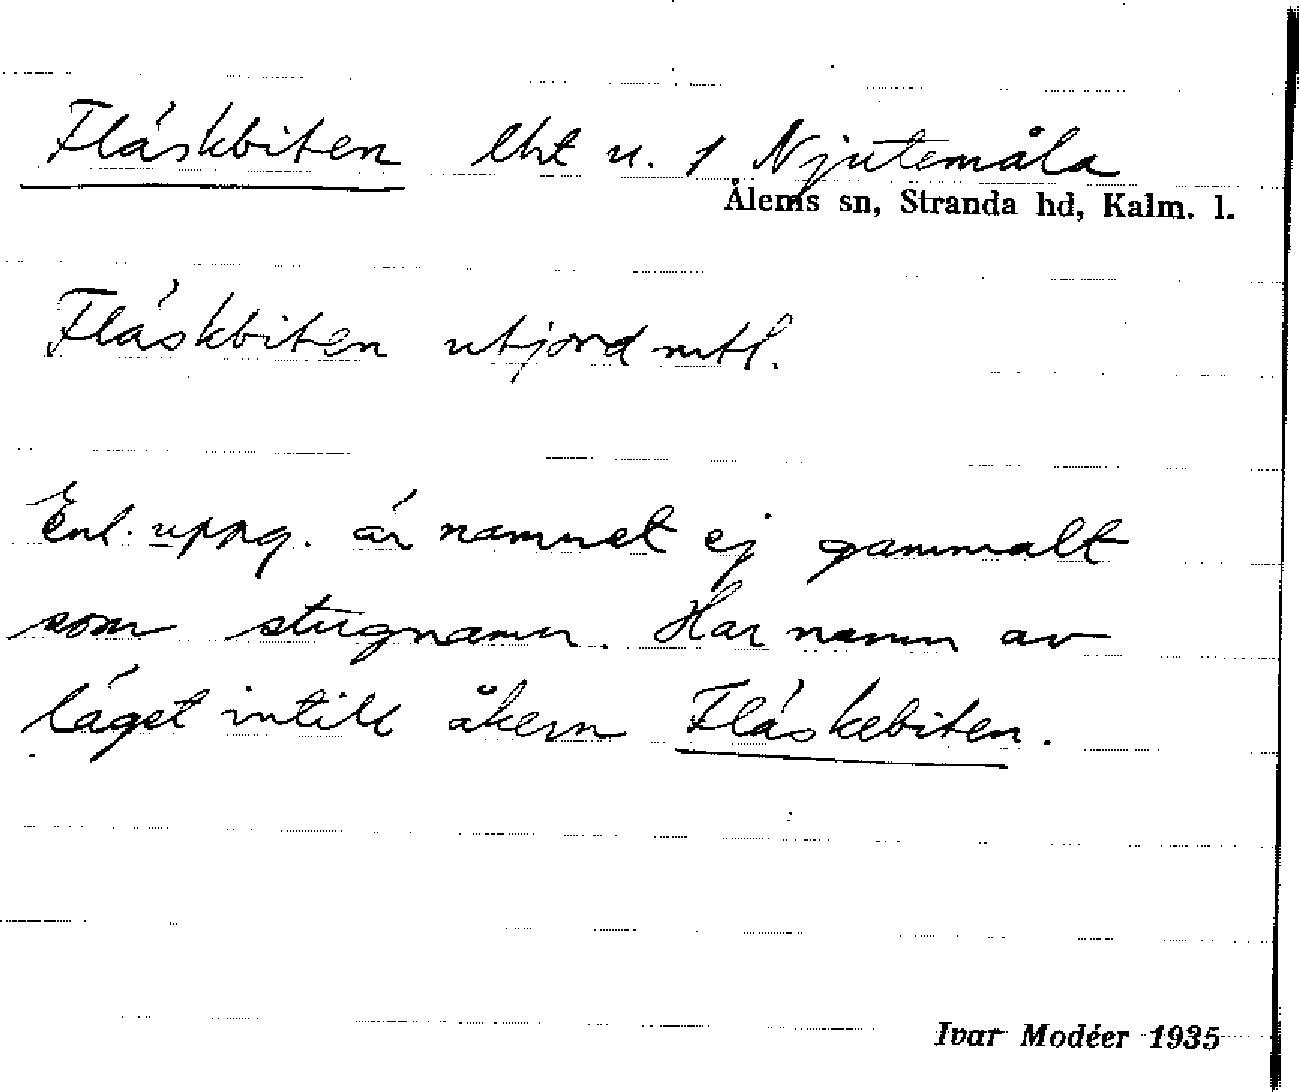 Fläskbiten lht u. 1 Njutemåla
Ålems sn, Stranda hd, Kalm. l.
Fläskbiten utjord mtl.
Enl. uppg. är namnet ej gammalt
som stugnamn. Har namn av
läget intill åkern Fläskebiten.
Ivar Modéer 1935